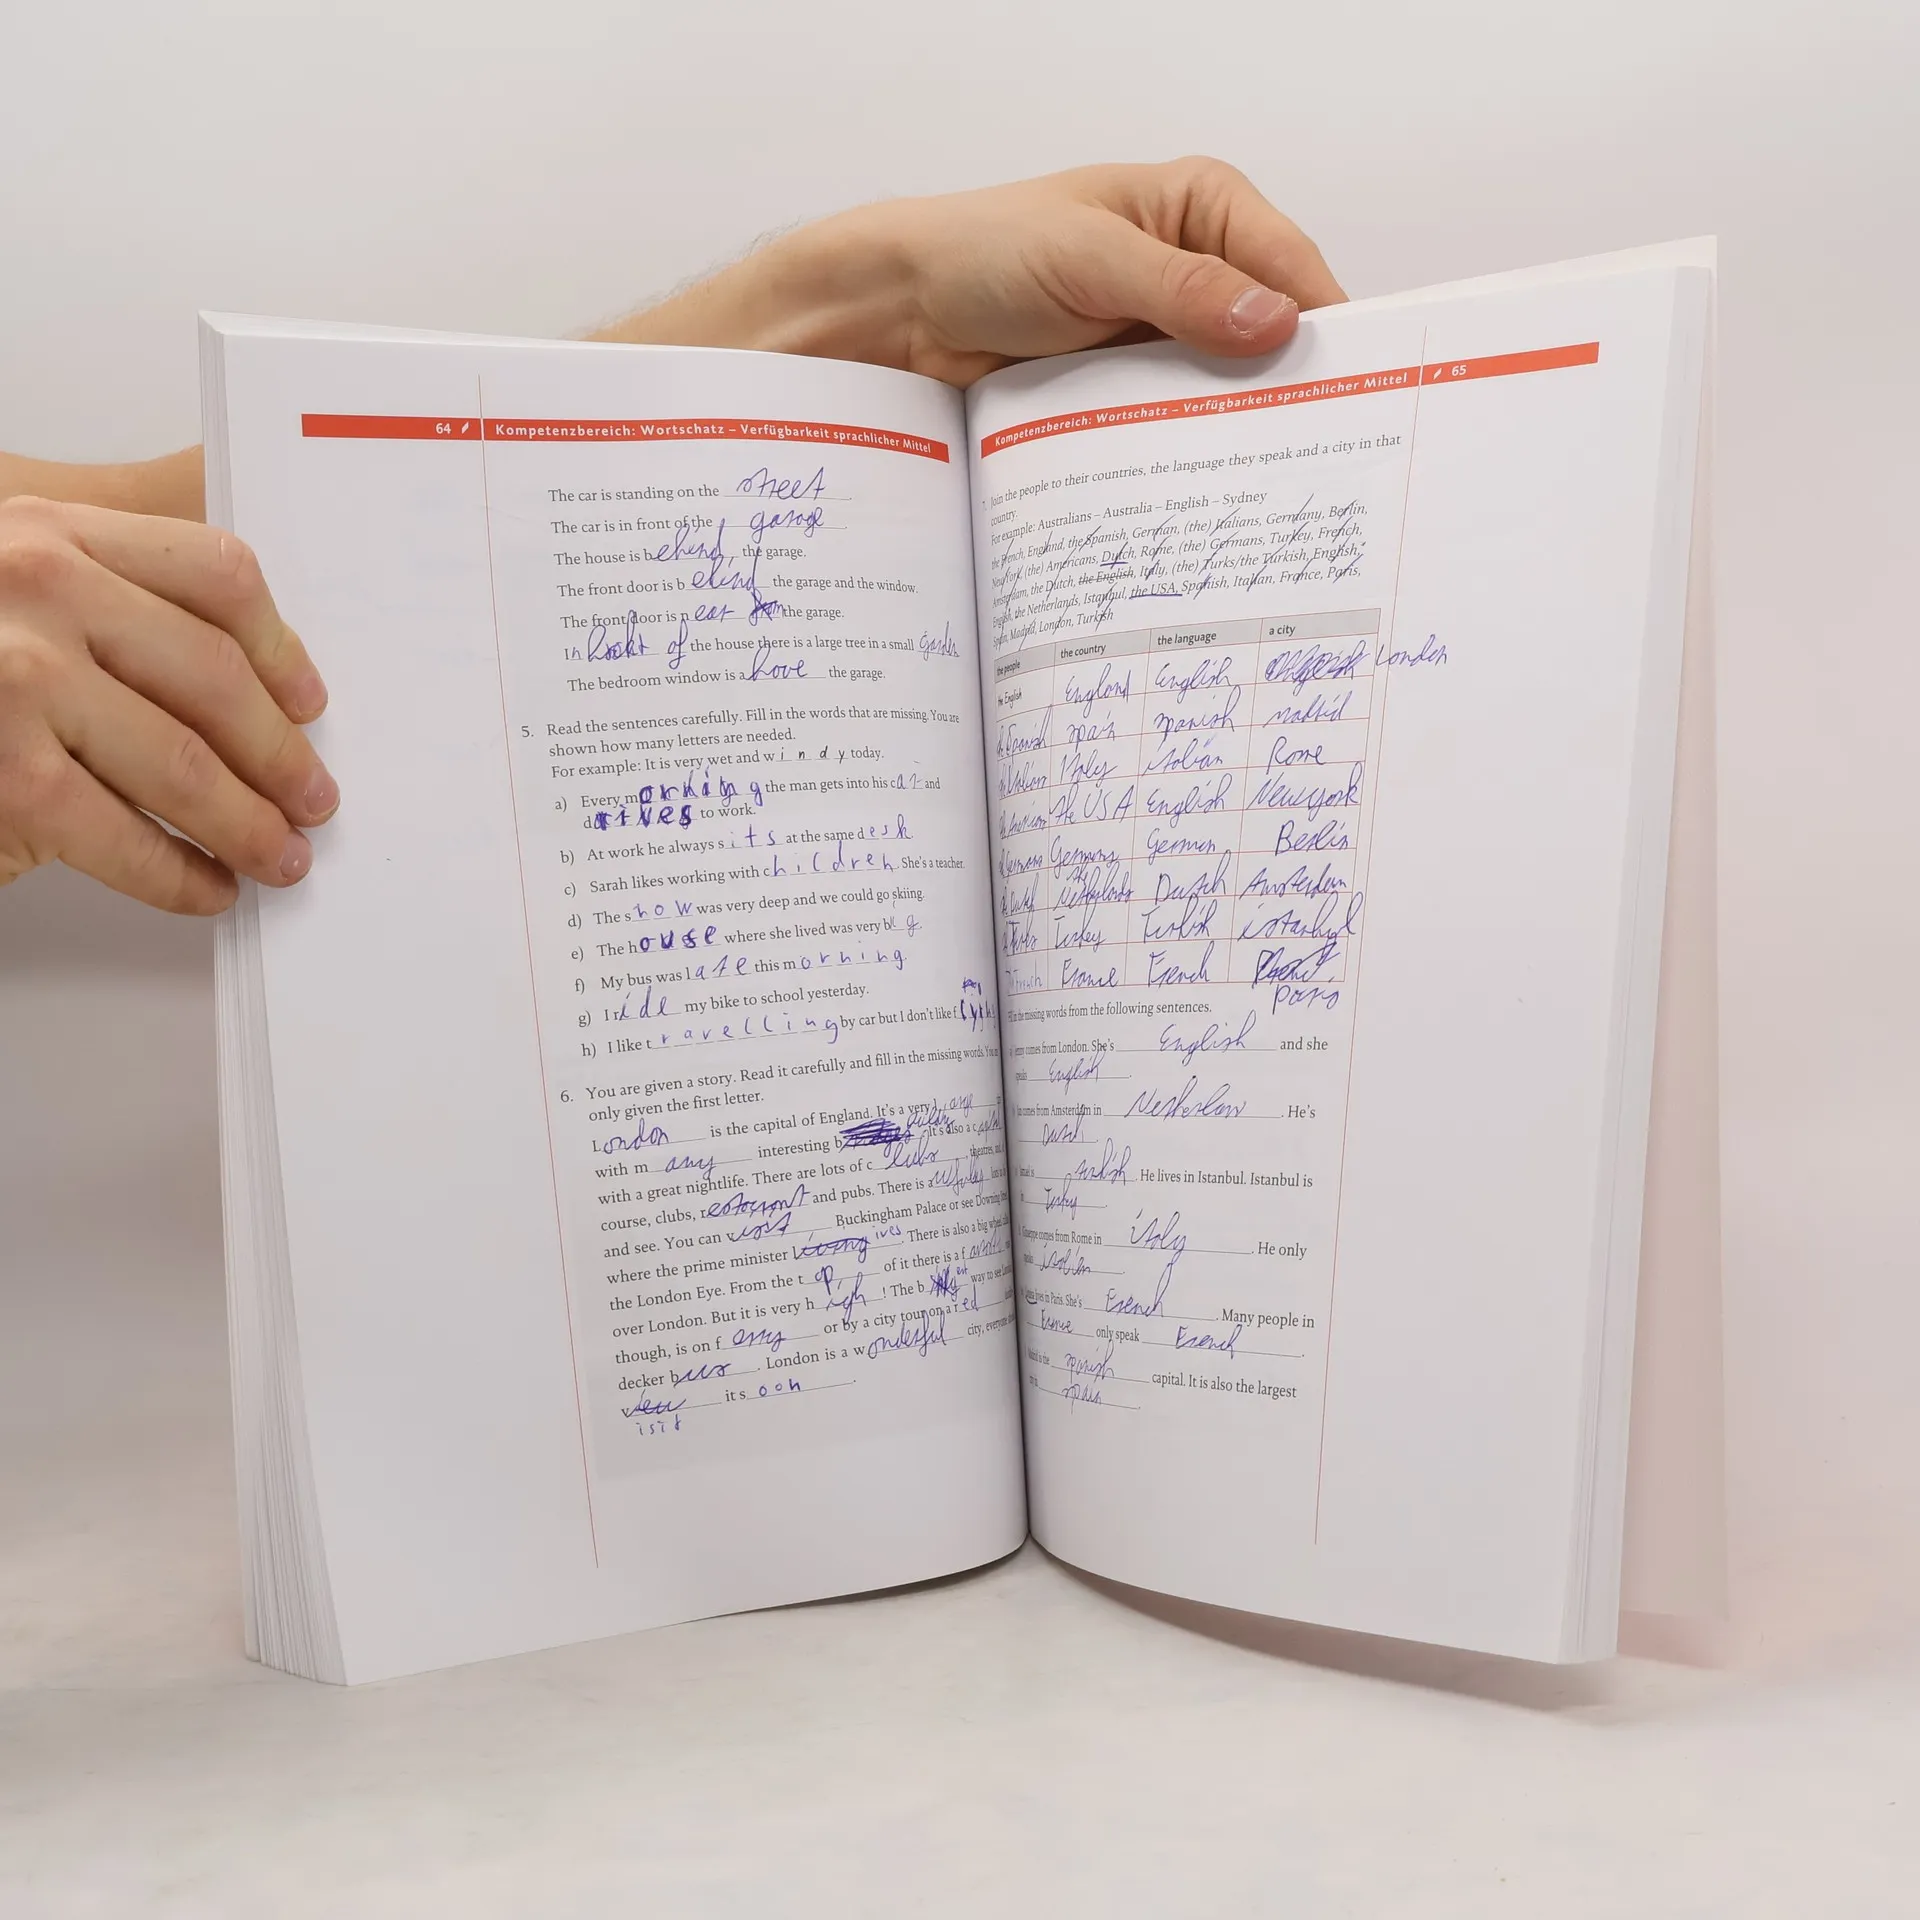 64 Kompetenzbereich: Wortschatz – Verfügbarkeit sprachlicher Mittel
The car is standing on the street.
The car is in front of the garage.
The house is behend, the garage.
The front door is b ehind the garage and the window.
The front door is near the garage.
In of the house there is a large tree in a small garden
The bedroom window is above the garage.
5. Read the sentences carefully. Fill in the words that are missing. You are
shown how many letters are needed.
For example: It is very wet and w i n d y today.
a) Every morning the man gets into his car and
drives to work.
b) At work he always sits at the same desk
c) Sarah likes working with children. She's a teacher.
d) The snow was very deep and we could go skiing.
e) The house where she lived was very big.
f) My bus was late this morning.
g) I ride my bike to school yesterday.
h) I like travelling by car but I don't like f
6. You are given a story. Read it carefully and fill in the missing words. You
only given the first letter.
London is the capital of England. It's a very large
with many interesting b It's also a c
with a great nightlife. There are lots of clubs, theatres,
course, clubs, and pubs. There is a
and see. You can visit Buckingham Palace or see Downing
where the prime minister lives. There is also a big wheel
the London Eye. From the top of it there is a f
over London. But it is very high! The b est way to see
though, is on ferry or by a city tour on a red
decker bus. London is a wonderful city, everyone
view isit it soon.
Kompetenzbereich: Wortschatz – Verfügbarkeit sprachlicher Mittel 65
7. Join the people to their countries, the language they speak and a city in that
country.
For example: Australians – Australia – English – Sydney
the French, England, the Spanish, German, (the) Italians, Germany, Berlin,
New York, (the) Americans, Dutch, Rome, (the) Germans, Turkey, French,
Amsterdam, the Dutch, the English, Italy, (the) Turks/the Turkish, English,
English, the Netherlands, Istanbul, the USA, Spanish, Italian, France, Paris,
Spain, Madrid, London, Turkish
the people the country the language a city
the English England English London
Spanish spain spanish madrid
Italy italian Rome
the USA English New york
Germans Germany German Berlin
the Netherlands Dutch Amsterdam
Turkey Turkish istanbul
French France French
paris
the missing words from the following sentences.
comes from London. She's English and she
speaks English.
comes from Amsterdam in Netherlan. He's
Dutch.
is Turkish. He lives in Istanbul. Istanbul is
Turkey.
Giuseppe comes from Rome in italy. He only
speaks italian.
lives in Paris. She's French. Many people in
France only speak French.
Madrid is the spanish capital. It is also the largest
spain.